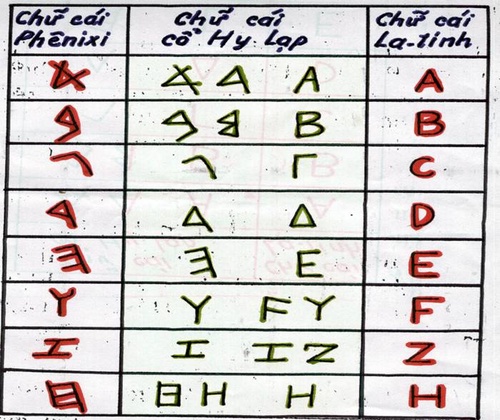 Chữ cái Phênixi
Chữ cái cổ Hy Lạp
Chữ cái La-tinh
𐤀 Α A
𐤁 Β B
𐤂 Γ C
𐤃 Δ D
𐤄 Ε E
𐤅 Y F Y F
𐤆 I I Z Z
𐤇 日 H H H